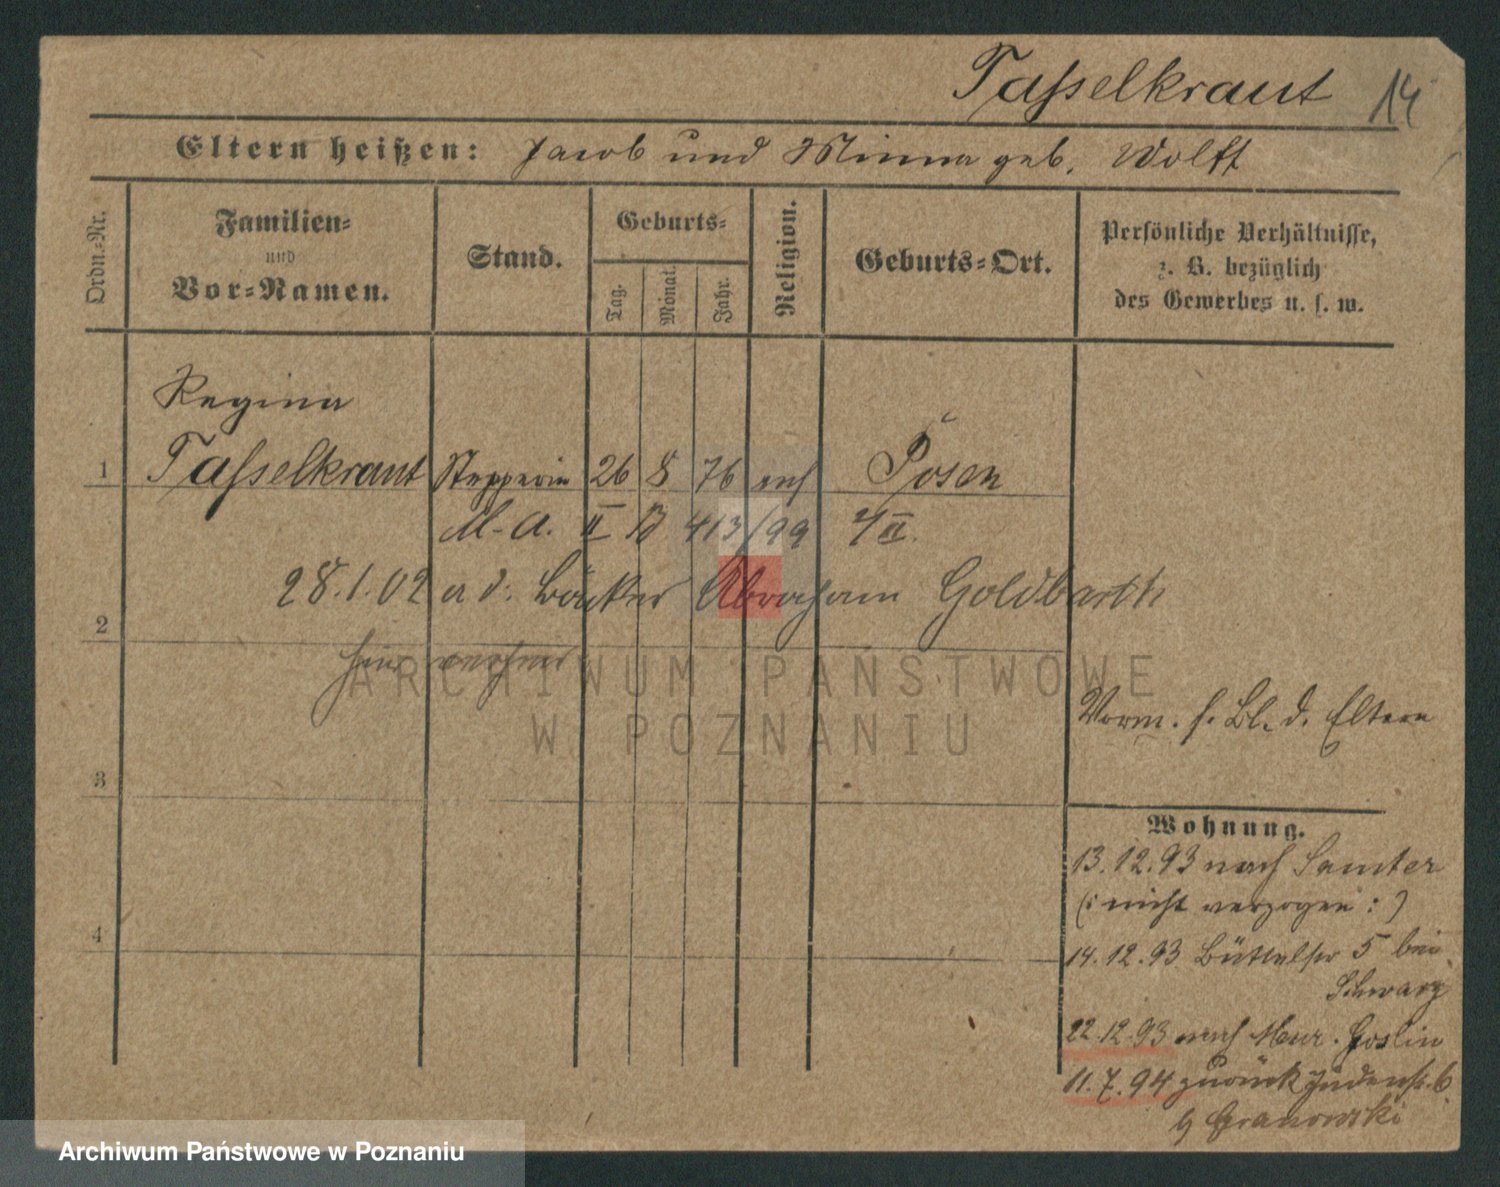 Tasselkraut 14
Eltern heißen: Jacob und Minna geb. Wolff
Ordn.-Nr.
Familien-
und
Vor-Namen.
Stand.
Geburts-
Tag.
Monat.
Jahr.
Religion.
Geburts-Ort.
Persönliche Verhältnisse,
z. B. bezüglich
des Gewerbes u. s. w.
Regina
1 Tasselkraut Stepperin 26 8 76 Posen
M.A. II B 413/99 4/II.
28.1.02 a d. Bäcker Abraham Goldbarth
2
3
4
Vorm. s. Bl. d. Eltern
Wohnung.
13.12.93 nach Samter
(: nicht verzogen :)
14.12.93 Büttelstr 5 bei
Schwarz
22.12.93 nach Mur. Goslin
11.7.94 zurück Judenstr. 6
b Granowski
ARCHIWUM PAŃSTWOWE
W POZNANIU
Archiwum Państwowe w Poznaniu